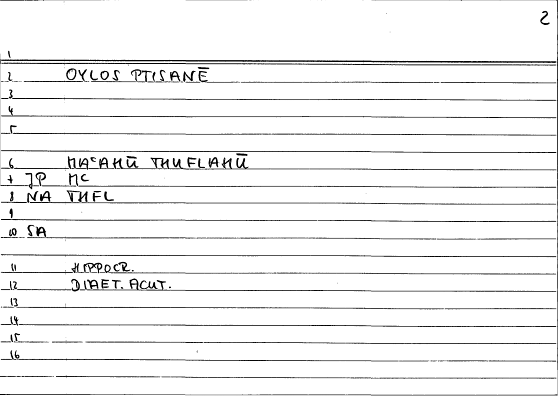 2
1
2 OYLOS PTISANĒ
3
4
5
6 MAᶜAHŪ THUFLAHŪ
7 JP MC
8 NA THFL
9
10 SA
11 HIPPOCR.
12 DIAET. ACUT.
13
14
15
16